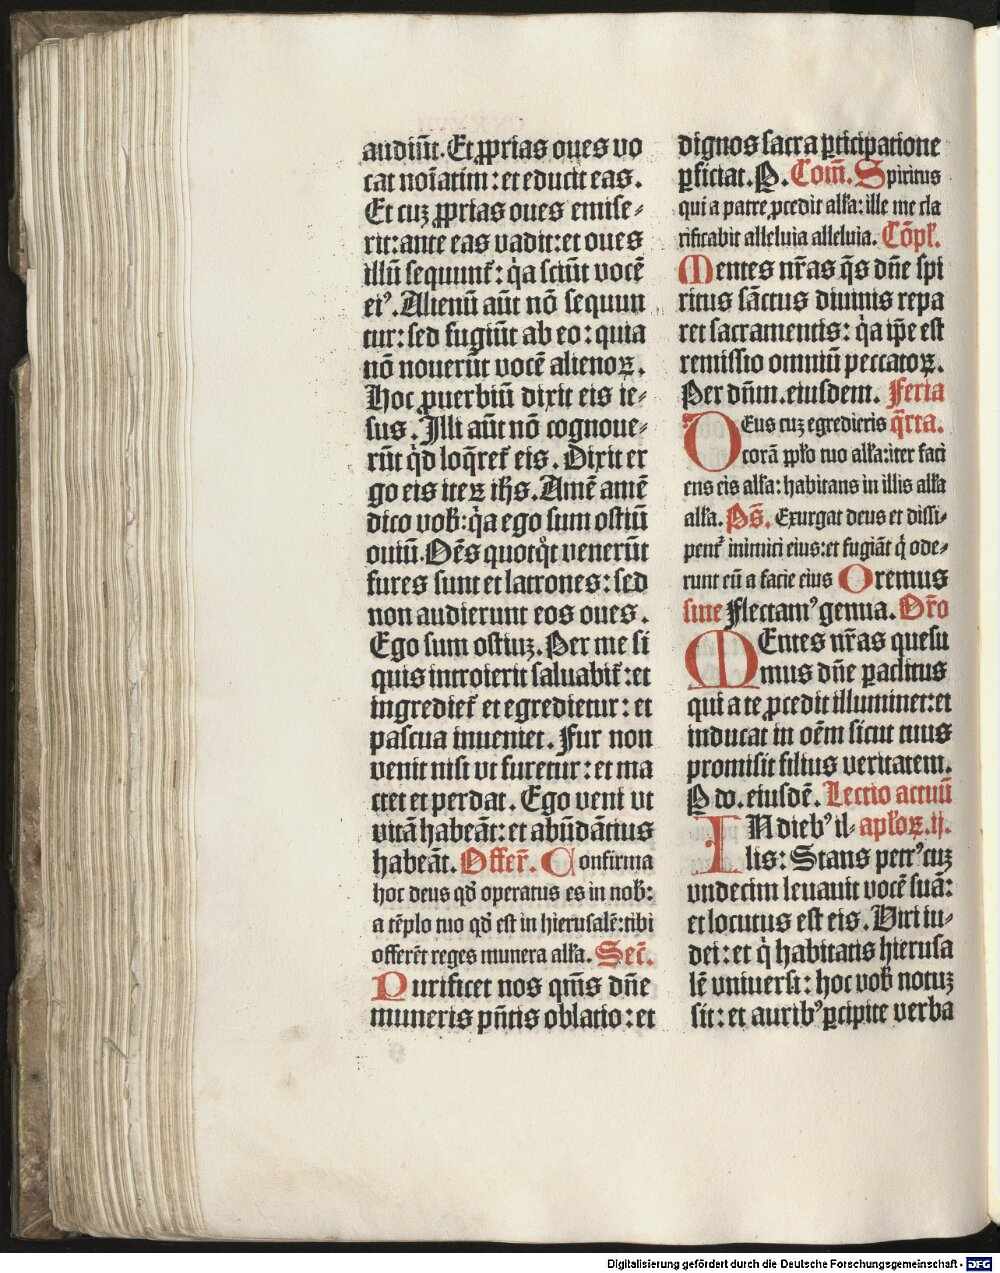 audiūt. Et ꝓprias oues vo
cat noīatim: et educit eas.
Et cuꝫ ꝓprias oues emiſe⸗
rit: ante eas vadit: et oues
illū ſequunt᷑: q̇a ſciūt vocē
eiꝰ. Alienū aūt nō ſequun
tur: ſed fugiūt ab eo: quia
nō nouerūt vocē alienoꝝ.
Hoc ꝓuerbiū dixit eis ie⸗
ſus. Illi aūt nō cognoue⸗
rūt q̇d loq̄ret᷑ eis. Dixit er
go eis iteꝝ ih̄s. Amē amē
dico vob̄: q̇a ego ſum oſtiū
ouiū. Oēs quotq̇t venerūt
fures ſunt et latrones: ſed
non audierunt eos oues.
Ego ſum oſtiuꝫ. Per me ſi
quis introierit ſaluabit᷑: et
ingrediet᷑ et egredietur: et
paſcua inueniet. Fur non
venit niſi vt furetur: et ma
ctet et perdat. Ego veni vt
vitā habeāt: et abūdātius
habeāt. Offer̄. Confirma
hoc deus qd̄ operatus es in nob̄:
a tēplo tuo qd̄ eſt in hieruſalē: tibi
offerēt reges munera alľa. Sec̄.
Purificet nos qm̄s dn̄e
muneris pn̄tis oblatio: et
dignos ſacra ꝑticipatione
ꝑficiat. P. Com̄. Spiritus
qui a patre ꝓcedit alľa: ille me cla
rificabit alleluia alleluia. Cōpľ.
Mentes nr̄as q̄s dn̄e ſpi
ritus ſāctus diuinis repa
ret ſacramentis: q̇a ip̄e eſt
remiſſio omniū peccatoꝝ.
Per dn̄m. eiuſdem. Feria
DEus cuꝫ egredieris q̄rta.
corā pp̄lo tuo alľa: iter faci
ens eis alľa: habitans in illis alľa
alľa. Ps̄. Exurgat deus et diſſi⸗
pent᷑ inimici eius: et fugiāt q̇ ode⸗
runt eū a facie eius Oremus
ſine Flectamꝰ genua. Or̄o
MEntes nr̄as queſu
mus dn̄e paclitus
qui a te ꝓcedit illuminet: et
inducat in oēm ſicut tuus
promiſit filius veritatem.
P do. eiuſdē. Lectio actuū
IN diebꝰ il⸗ apľoꝝ. ij.
lis: Stans petrꝰ cuꝫ
vndecim leuauit vocē ſuā:
et locutus eſt eis. Viri iu⸗
dei: et q̇ habitatis hieruſa
lē vniuerſi: hoc vob̄ notuꝫ
ſit: et auribꝰ ꝑcipite verba
Digitalisierung gefördert durch die Deutsche Forschungsgemeinschaft - DFG